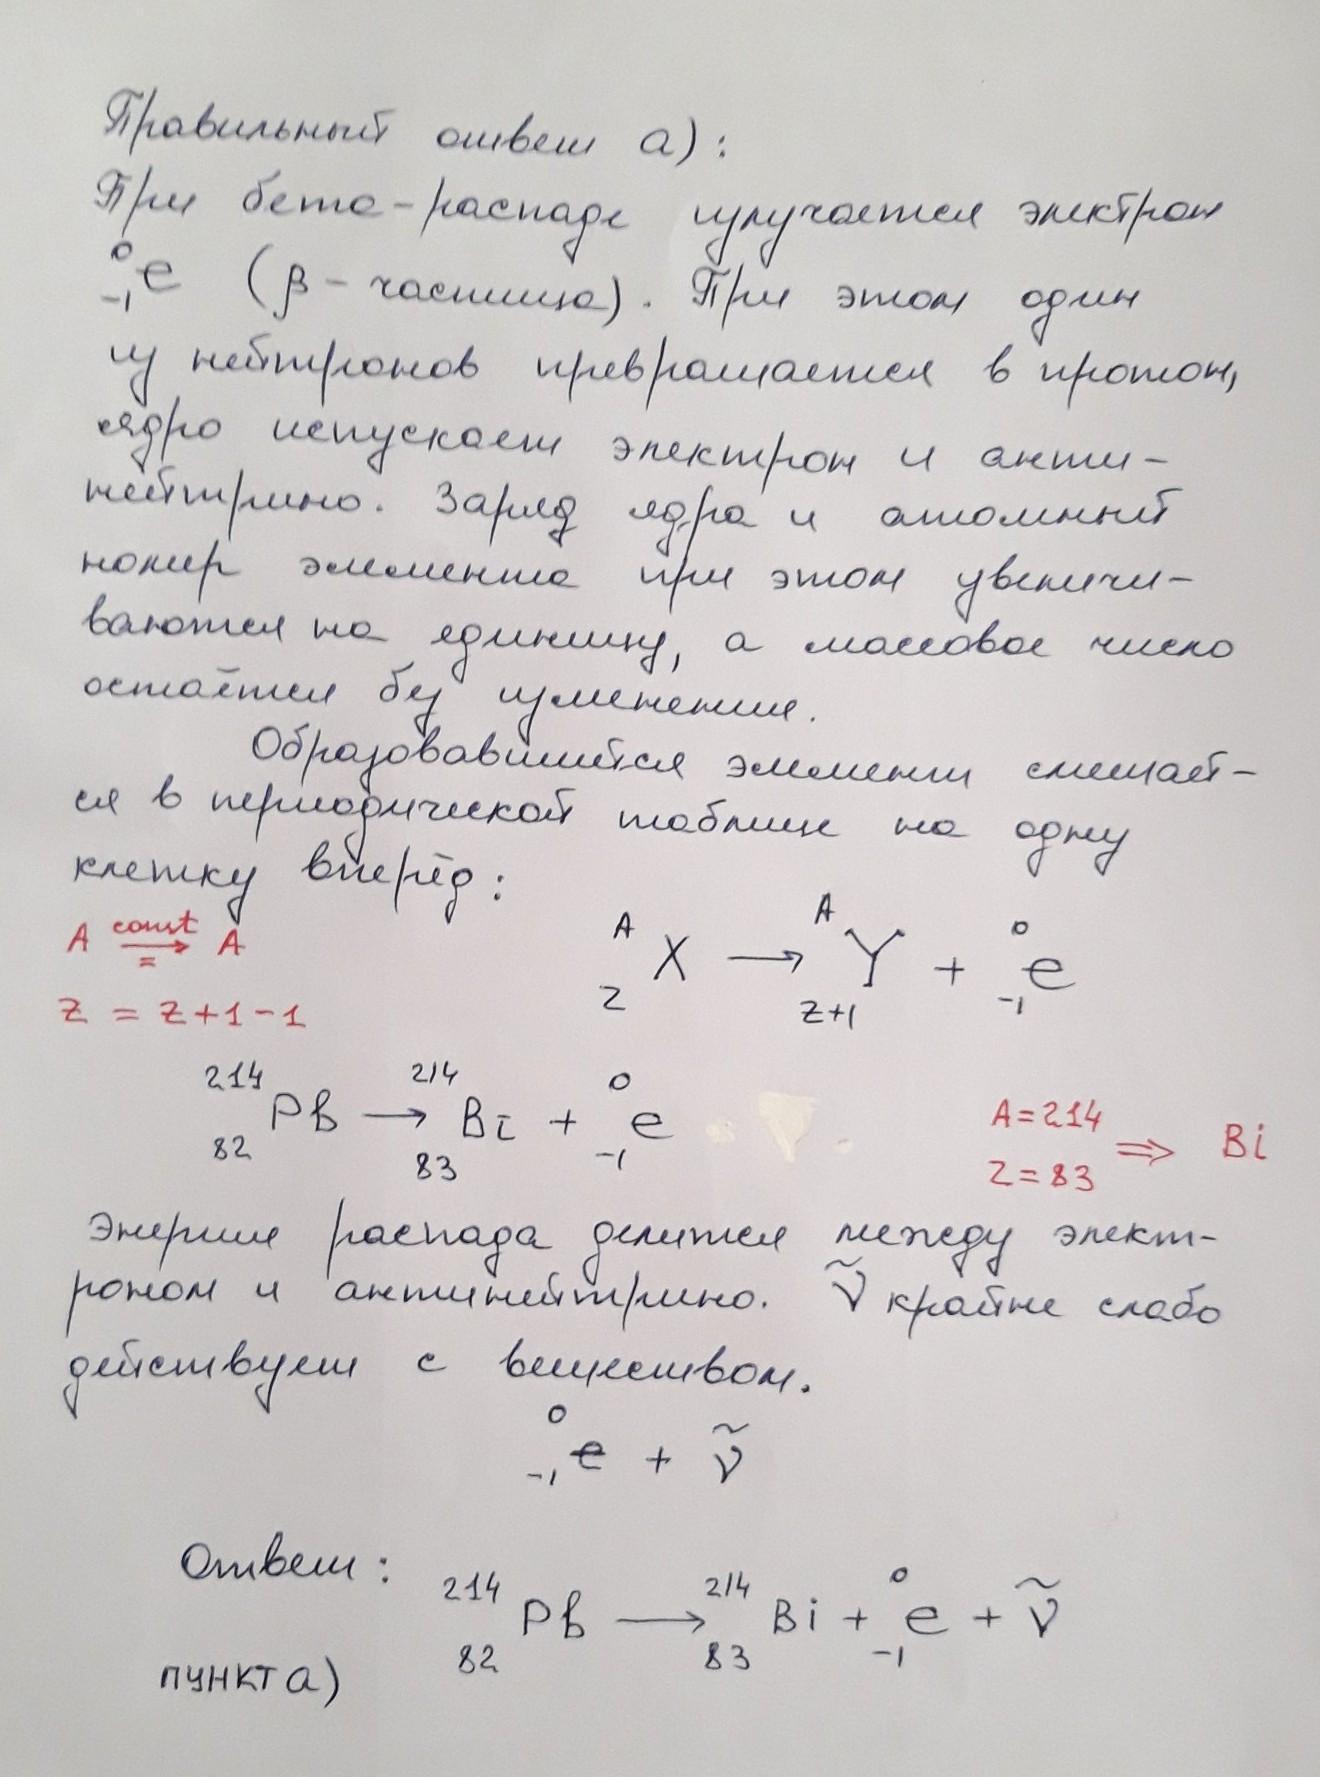 Правильный ответ а):
При бета-распаде излучается электрон
⁰₋₁e (β - частица). При этом один
из нейтронов превращается в протон,
ядро испускает электрон и анти-
нейтрино. Заряд ядра и атомный
номер элемента при этом увеличи-
ваются на единицу, а массовое число
остаётся без изменения.
Образовавшийся элемент смещает-
ся в периодической таблице на одну
клетку вперёд:
A const → = A
Z = Z+1-1
ᴬ_Z X → ᴬ_Z+1 Y + ⁰₋₁e
²¹⁴₈₂Pb → ²¹⁴₈₃Bi + ⁰₋₁e
A=214
Z=83 ⇒ Bi
Энергия распада делится между элект-
роном и антинейтрино. ṽ крайне слабо
действует с веществом.
⁰₋₁e + ṽ
Ответ: ²¹⁴₈₂Pb → ²¹⁴₈₃Bi + ⁰₋₁e + ṽ
пункт а)